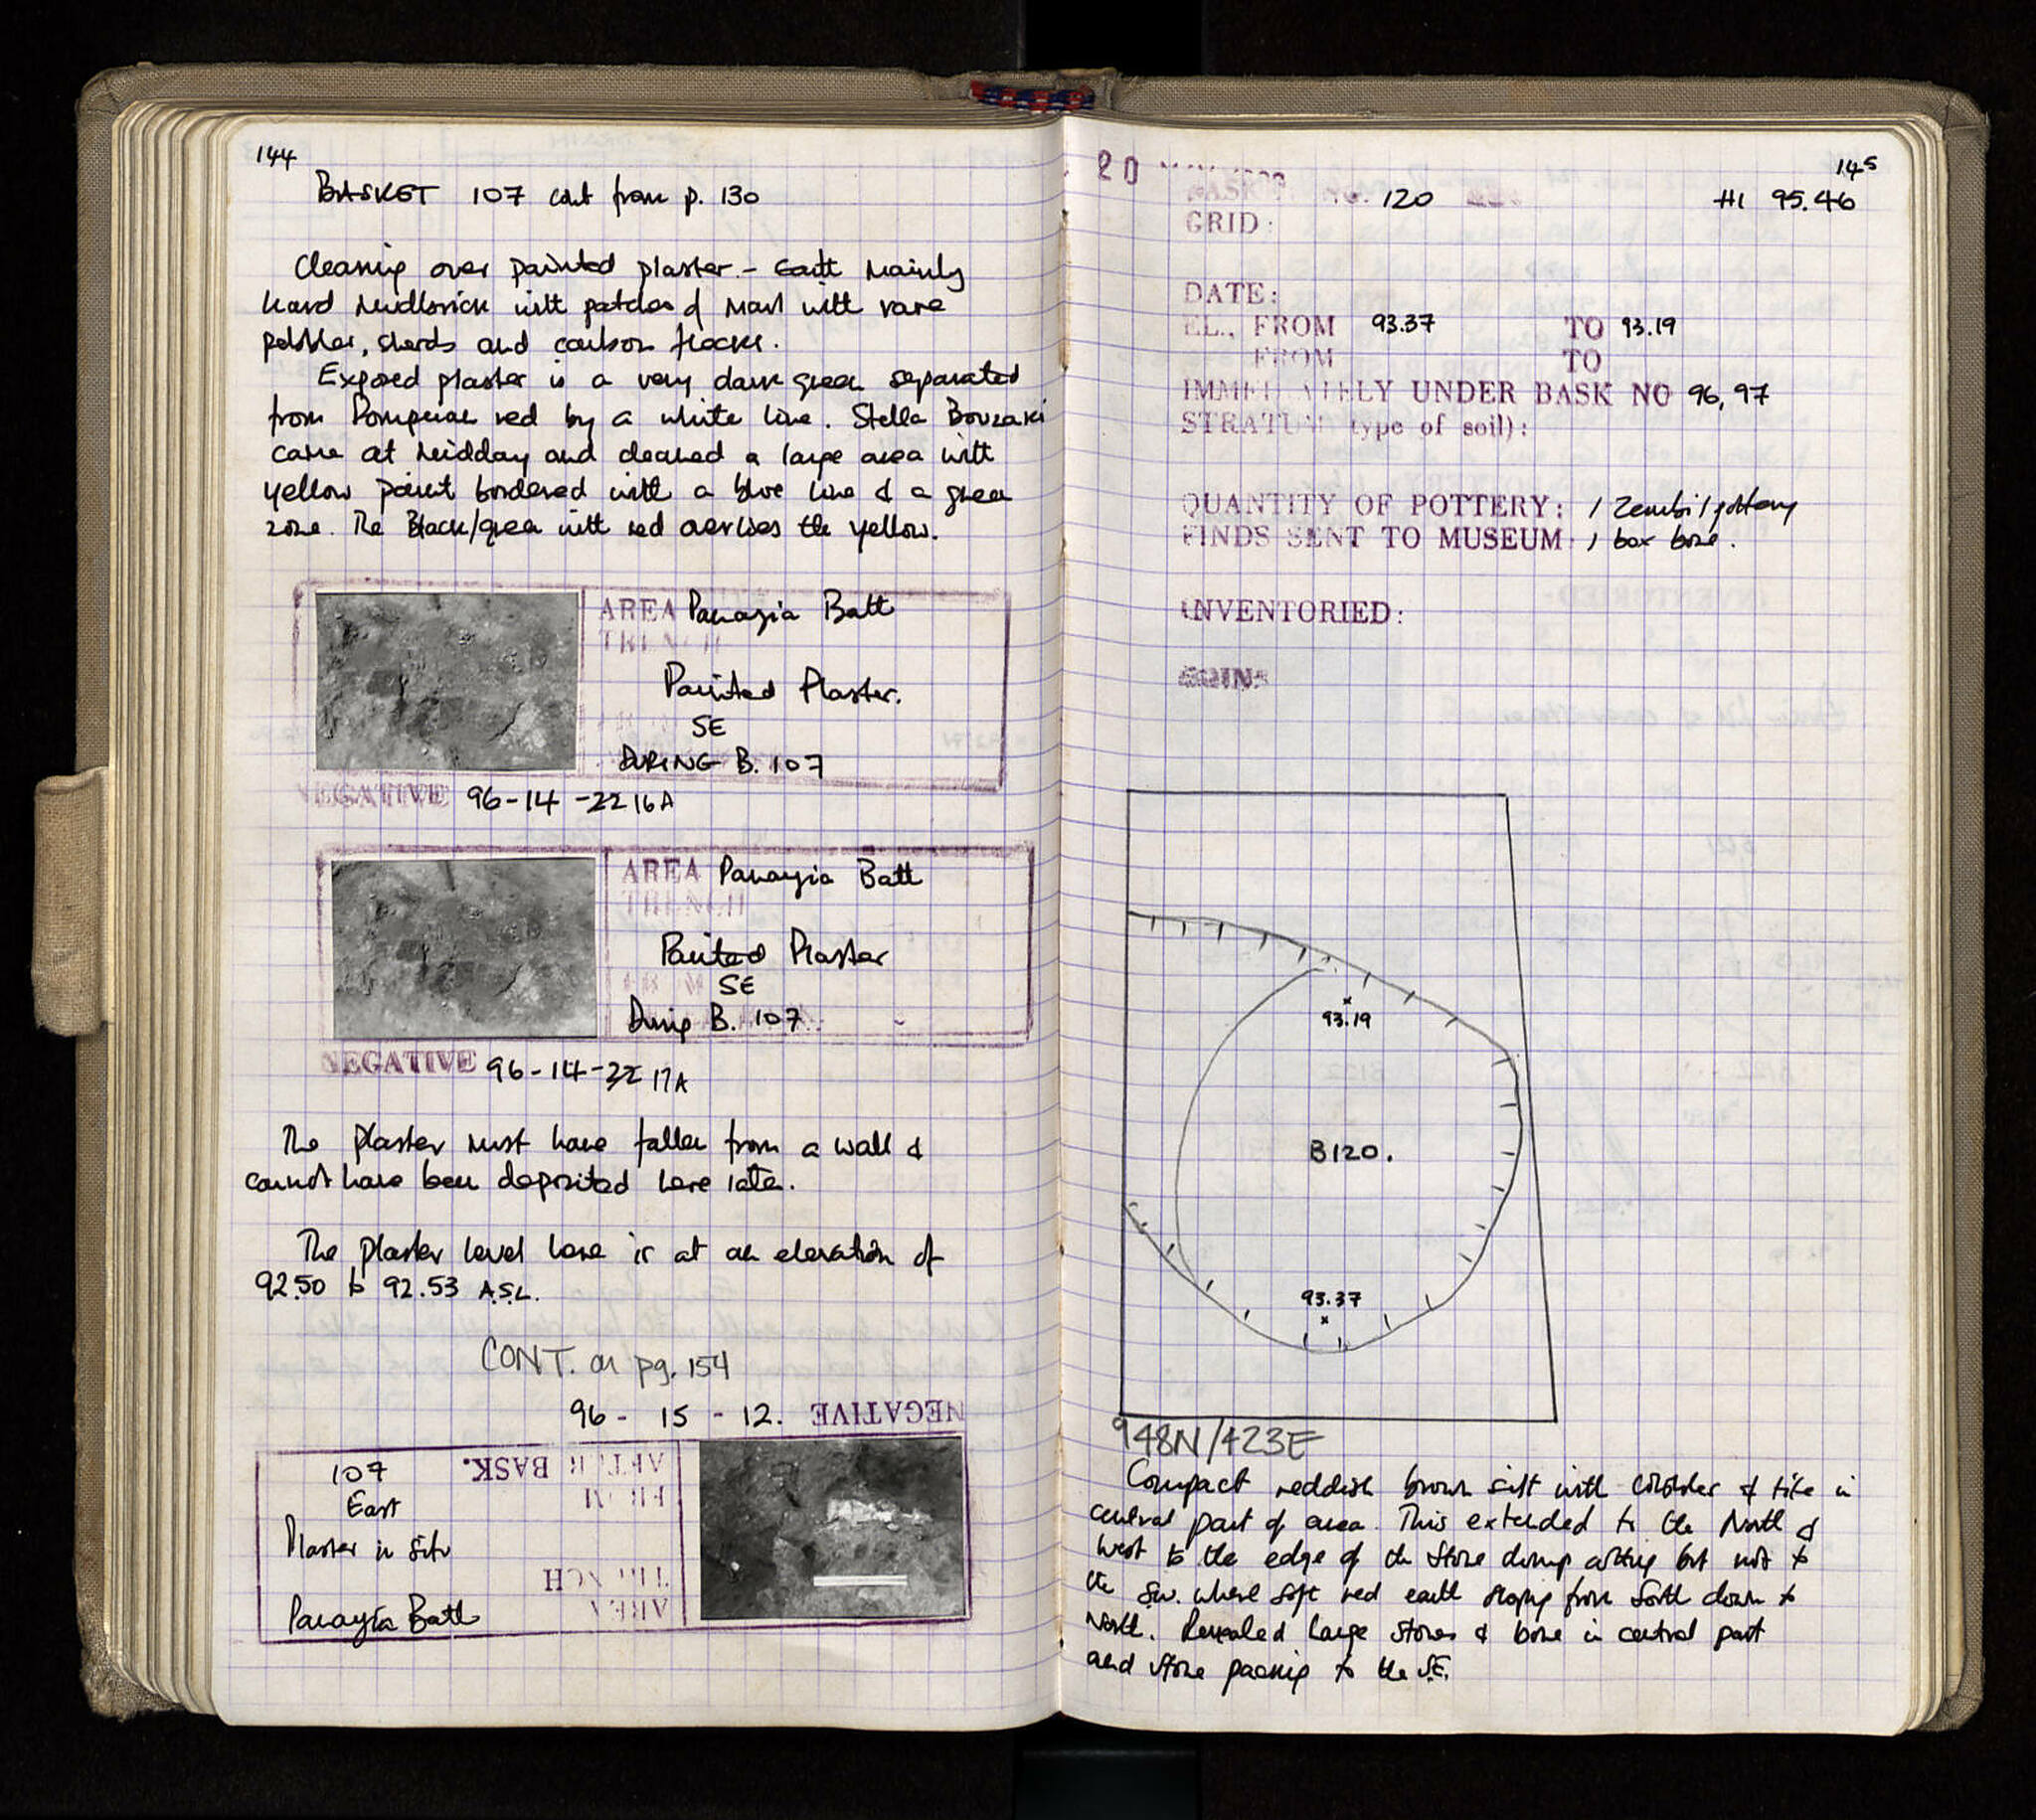 144
BASKET 107 cont from p. 130
Cleaning over painted plaster - Earth mainly
hard mudbrick with patches of marl with rare
pebbles, sherds and carbon flecks.
Exposed plaster is a very dark green separated
from Pompeian red by a white line. Stella Bouzaki
came at midday and cleaned a large area with
yellow paint bordered with a blue line & a green
zone. The Black/green with red overlies the yellow.
AREA Panayia Bath
TRENCH
Painted Plaster.
SE
DURING B. 107
NEGATIVE 96-14-22 16A
AREA Panayia Bath
TRENCH
Painted Plaster
SE
During B. 107
NEGATIVE 96-14-22 17A
The plaster must have fallen from a wall &
cannot have been deposited here later.
The plaster level here is at an elevation of
92.50 to 92.53 A.S.L.
CONT. on pg. 154
96 - 15 - 12. NEGATIVE
107 AFTER BASK.
East FROM
Plaster in Situ
TRENCH
Panayia Bath AREA
145
20
BASKET NO. 120
HI 95.46
GRID:
DATE:
EL., FROM 93.37 TO 93.19
FROM TO
IMMEDIATELY UNDER BASK NO 96, 97
STRATUM (type of soil):
QUANTITY OF POTTERY: 1 Zembil pottery
FINDS SENT TO MUSEUM: 1 box bone.
INVENTORIED:
COIN:
93.19
B120.
93.37
948N/423E
Compact reddish brown silt with cobbles & tile in
central part of area. This extended to the North &
West to the edge of the stone dump cutting but not to
the SW. where soft red earth sloping from South down to
North. Revealed large stones & bone in central part
and stone packing to the SE.